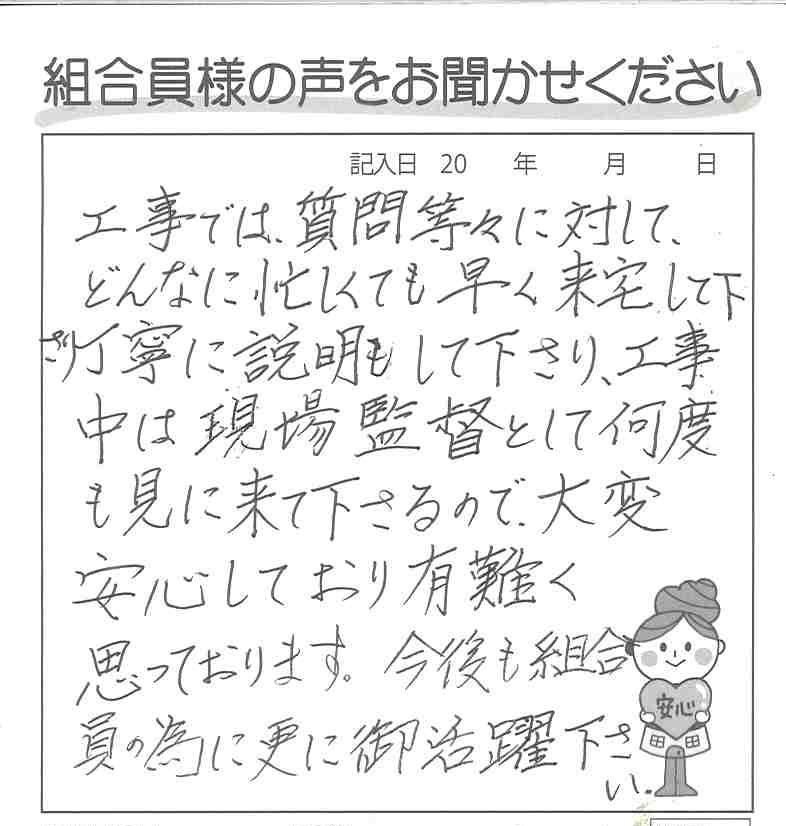 組合員様の声をお聞かせください
記入日 20 年 月 日
工事では、質問等々に対して、
どんなに忙しくても早く来宅して下
さり丁寧に説明もして下さり、工事
中は現場監督として何度
も見に来て下さるので、大変
安心しており有難く
思っております。今後も組合
員の為に更に御活躍下さ
い。
安心